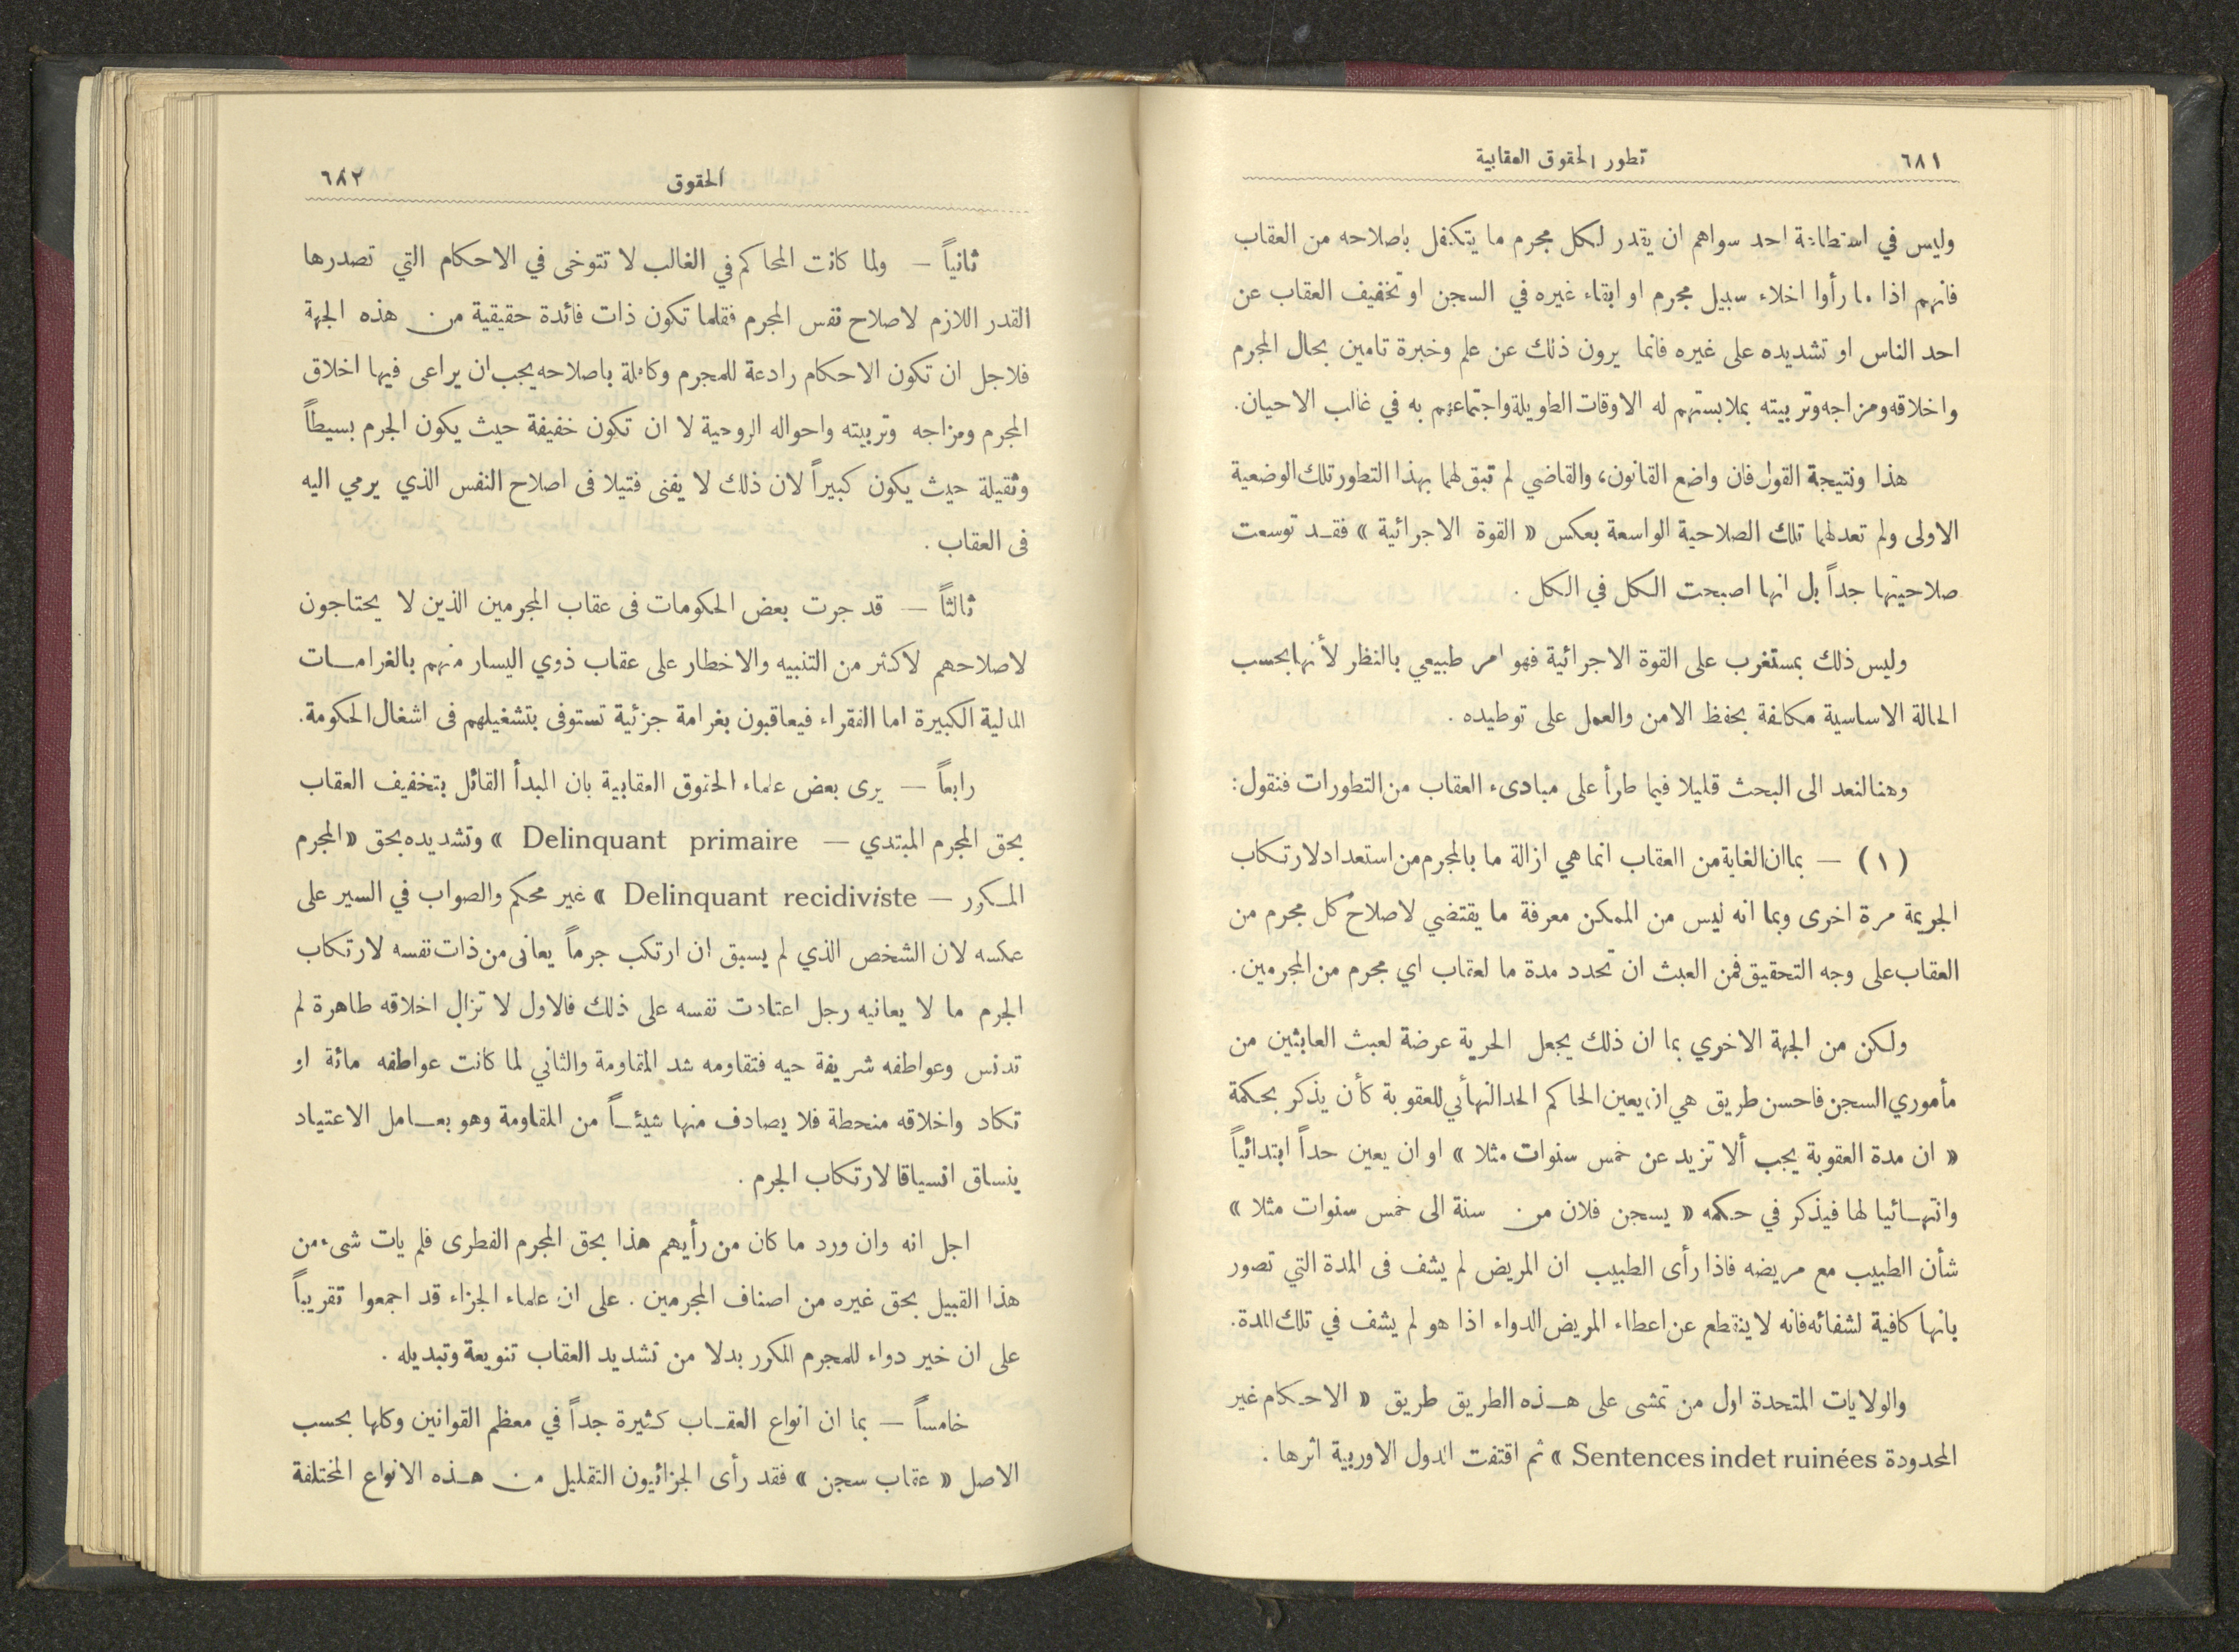 ٦٨١
تطور الحقوق العقابية
وليس في استطاعة احد سواهم ان يقدر لكل مجرم ما يتكفل باصلاحه من العقاب
فانهم اذا ما رأوا اخلاء سبيل مجرم او ابقاء غيره في السجن او تخفيف العقاب عن
احد الناس او تشديده على غيره فانما يرون ذلك عن علم وخبرة تامين بحال المجرم
واخلاقه ومزاجه وتربيته بملابستهم له الاوقات الطويلة واجتماعهم به في غالب الاحيان.
هذا ونتيجة القول فان واضع القانون، والقاضي لم تبق لهما بهذا التطور تلك الوضعية
الاولى ولم تعد لهما تلك الصلاحية الواسعة بعكس « القوة الاجرائية » فقد توسعت
صلاحيتها جداً بل انها اصبحت الكل في الكل .
وليس ذلك بمستغرب على القوة الاجرائية فهو امر طبيعي بالنظر لأنها بحسب
الحالة الاساسية مكلفة بحفظ الامن والعمل على توطيده .
وهنا لنعد الى البحث قليلا فيما طرأ على مبادىء العقاب من التطورات فنقول:
(١) – بما ان الغاية من العقاب انما هي ازالة ما بالمجرم من استعداد لارتكاب
الجريمة مرة اخرى وبما انه ليس من الممكن معرفة ما يقتضي لاصلاح كل مجرم من
العقاب على وجه التحقيق فمن العبث ان تحدد مدة ما لعقاب اي مجرم من المجرمين.
ولكن من الجهة الاخرى بما ان ذلك يجعل الحرية عرضة لعبث العابثين من
مأموري السجن فاحسن طريق هي ان يعين الحاكم الحد النهأئي للعقوبة كأن يذكر بحكمة
« ان مدة العقوبة يجب ألا تزيد عن خمس سنوات مثلا » او ان يعين حداً ابتدائياً
وانتهائيا لها فيذكر في حكمه « يسجن فلان من سنة الى خمس سنوات مثلا »
شأن الطبيب مع مريضه فاذا رأى الطبيب ان المريض لم يشف فى المدة التي تصور
بانها كافية لشفائه فانه لا ينقطع عن اعطاء المريض الدواء اذا هو لم يشف في تلك المدة.
والولايات المتحدة اول من تمشى على هذه الطريق طريق « الاحكام غير
المحدودة Sentences indet ruinées » ثم اقتفت الدول الاوربية اثرها .
الحقوق
٦٨٢
ثانياً – ولما كانت المحاكم في الغالب لا تتوخى في الاحكام التي تصدرها
القدر اللازم لاصلاح نفس المجرم فقلما تكون ذات فائدة حقيقية من هذه الجهة
فلاجل ان تكون الاحكام رادعة للمجرم وكافلة باصلاحه يجب ان يراعى فيها اخلاق
المجرم ومزاجه وتربيته واحواله الروحية لا ان تكون خفيفة حيث يكون الجرم بسيطاً
وثقيلة حيث يكون كبيراً لان ذلك لا يفنى فتيلا فى اصلاح النفس الذي يرمي اليه
فى العقاب .
ثالثاً – قد جرت بعض الحكومات فى عقاب المجرمين الذين لا يحتاجون
لاصلاحهم لاكثر من التنبيه والاخطار على عقاب ذوي اليسار منهم بالغرامات
المالية الكبيرة اما الفقراء فيعاقبون بغرامة جزئية تستوفى بتشغيلهم فى اشغال الحكومة.
رابعاً – يرى بعض علماء الحقوق العقابية بان المبدأ القائل بتخفيف العقاب
بحق المجرم المبتدي – Delinquant primaire » وتشديده بحق « المجرم
المكرر – Delinquant recidiviste » غير محكم والصواب في السير على
عكسه لان الشخص الذي لم يسبق ان ارتكب جرماً يعانى من ذات نفسه لارتكاب
الجرم ما لا يعانيه رجل اعتادت نفسه على ذلك فالاول لا تزال اخلاقه طاهرة لم
تدنس وعواطفه شريفة حيه فتقاومه شد المقاومة والثاني لما كانت عواطفه مائة او
تكاد واخلاقه منحطة فلا يصادف منها شيئاً من المقاومة وهو بعامل الاعتياد
ينساق انسياقا لارتكاب الجرم .
اجل انه وان ورد ما كان من رأيهم هذا بحق المجرم الفطرى فلم يات شىء من
هذا القبيل بحق غيره من اصناف المجرمين . على ان علماء الجزاء قد اجمعوا تقريباً
على ان خير دواء للمجرم المكرر بدلا من تشديد العقاب تنويعة وتبديله .
خامساً – بما ان انواع العقاب كثيرة جداً في معظم القوانين وكلها بحسب
الاصل « عقاب سجن » فقد رأى الجزائيون التقليل من هذه الانواع المختلفة